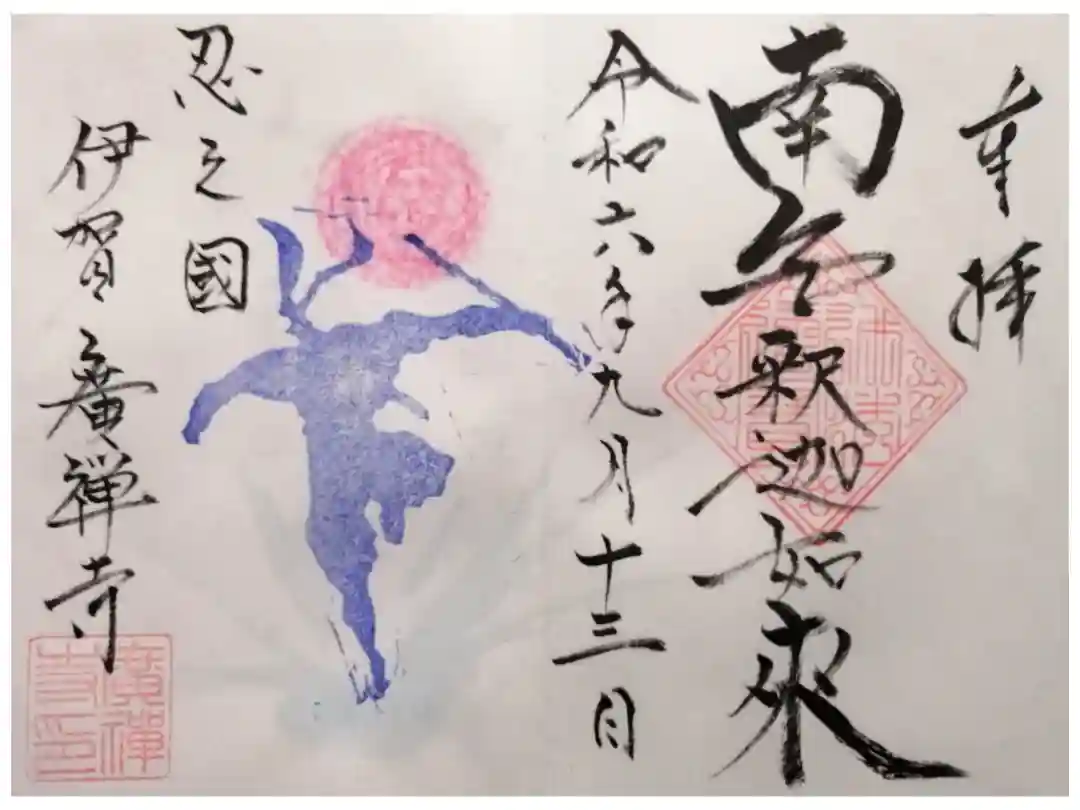 奉拝
南無釈迦如来
令和六年九月十三日
忍之國
伊賀廣禅寺
廣禅寺印